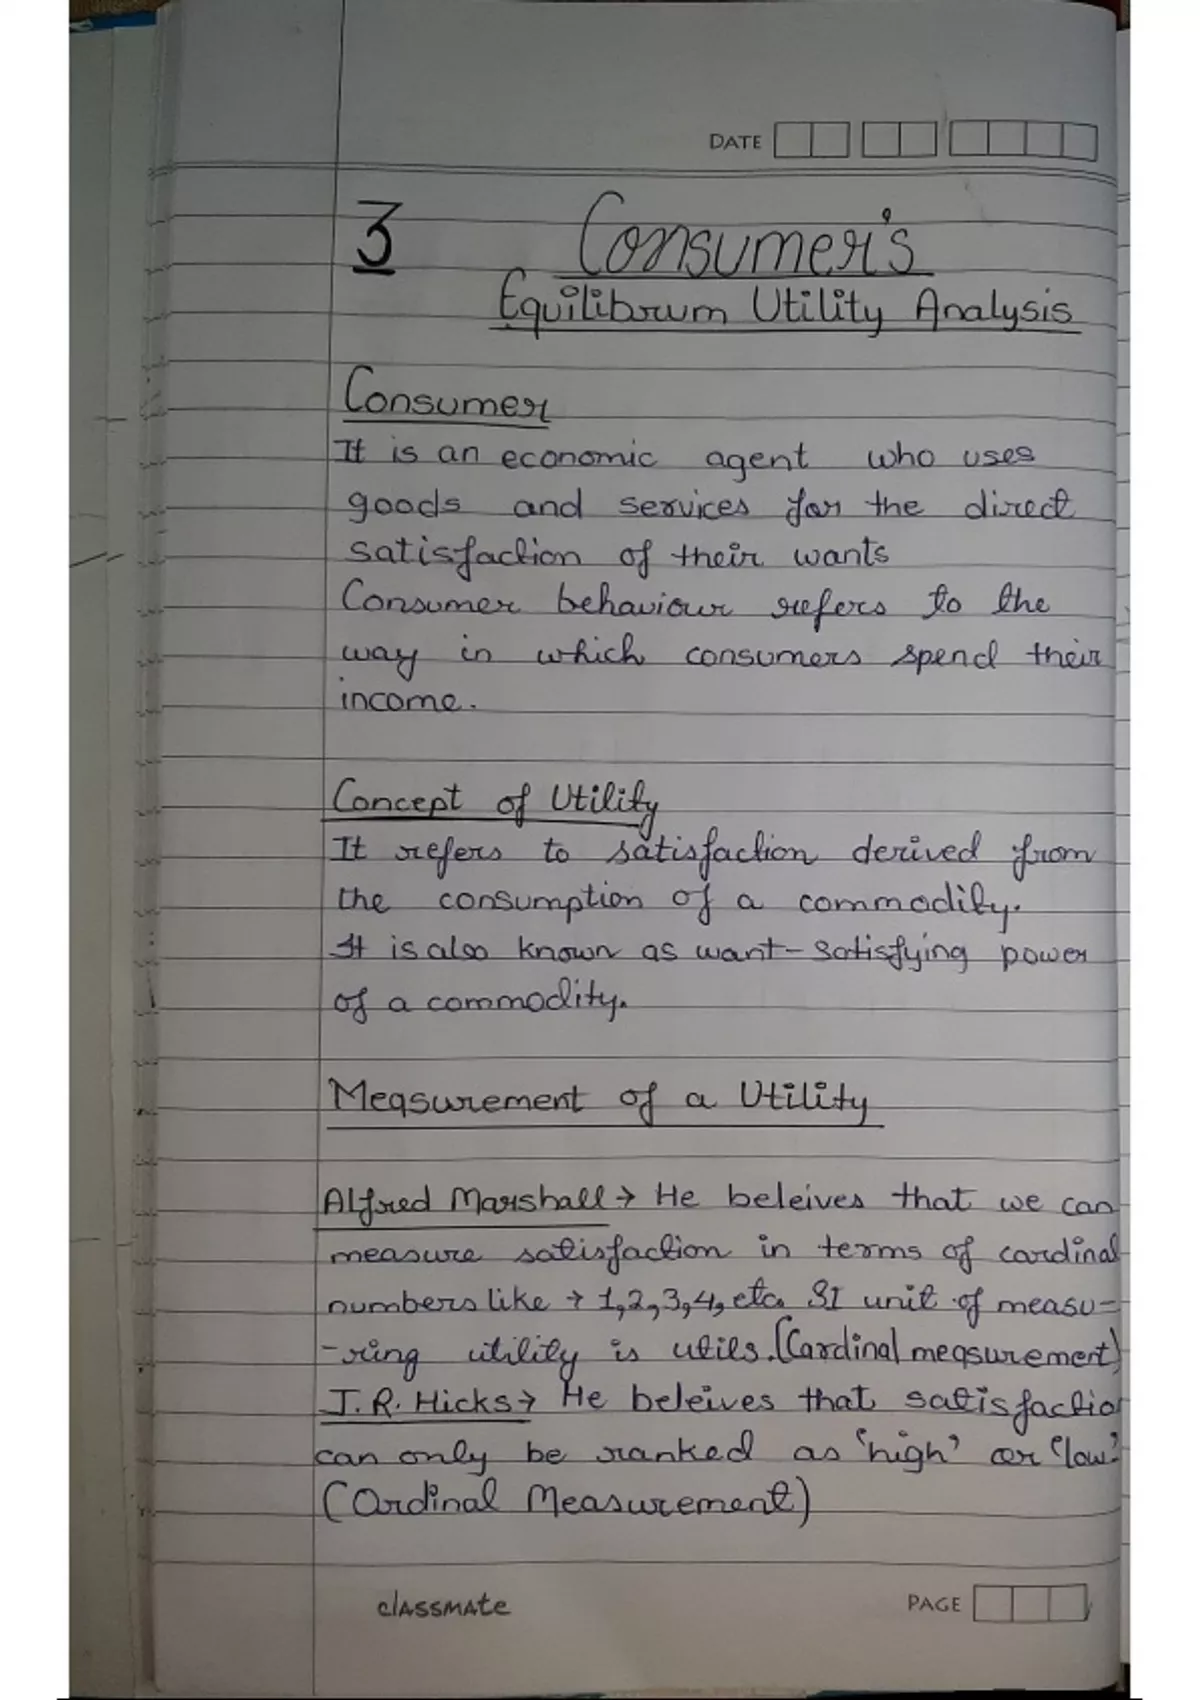 DATE
3 Consumer's
Equilibrum Utility Analysis
Consumer
It is an economic agent who uses
goods and services for the direct
satisfaction of their wants
Consumer behaviour refers to the
way in which consumers spend their
income.
Concept of Utility
It refers to satisfaction derived from
the consumption of a commodity.
It is also known as want-satisfying power
of a commodity.
Measurement of a Utility
Alfred Marshall → He beleives that we can
measure satisfaction in terms of cardinal
numbers like → 1,2,3,4, etc. SI unit of measu-
-ring utility is utils. (Cardinal measurement)
J.R. Hicks → He beleives that satisfaction
can only be ranked as 'high' or 'low'.
(Ordinal Measurement)
classmate PAGE